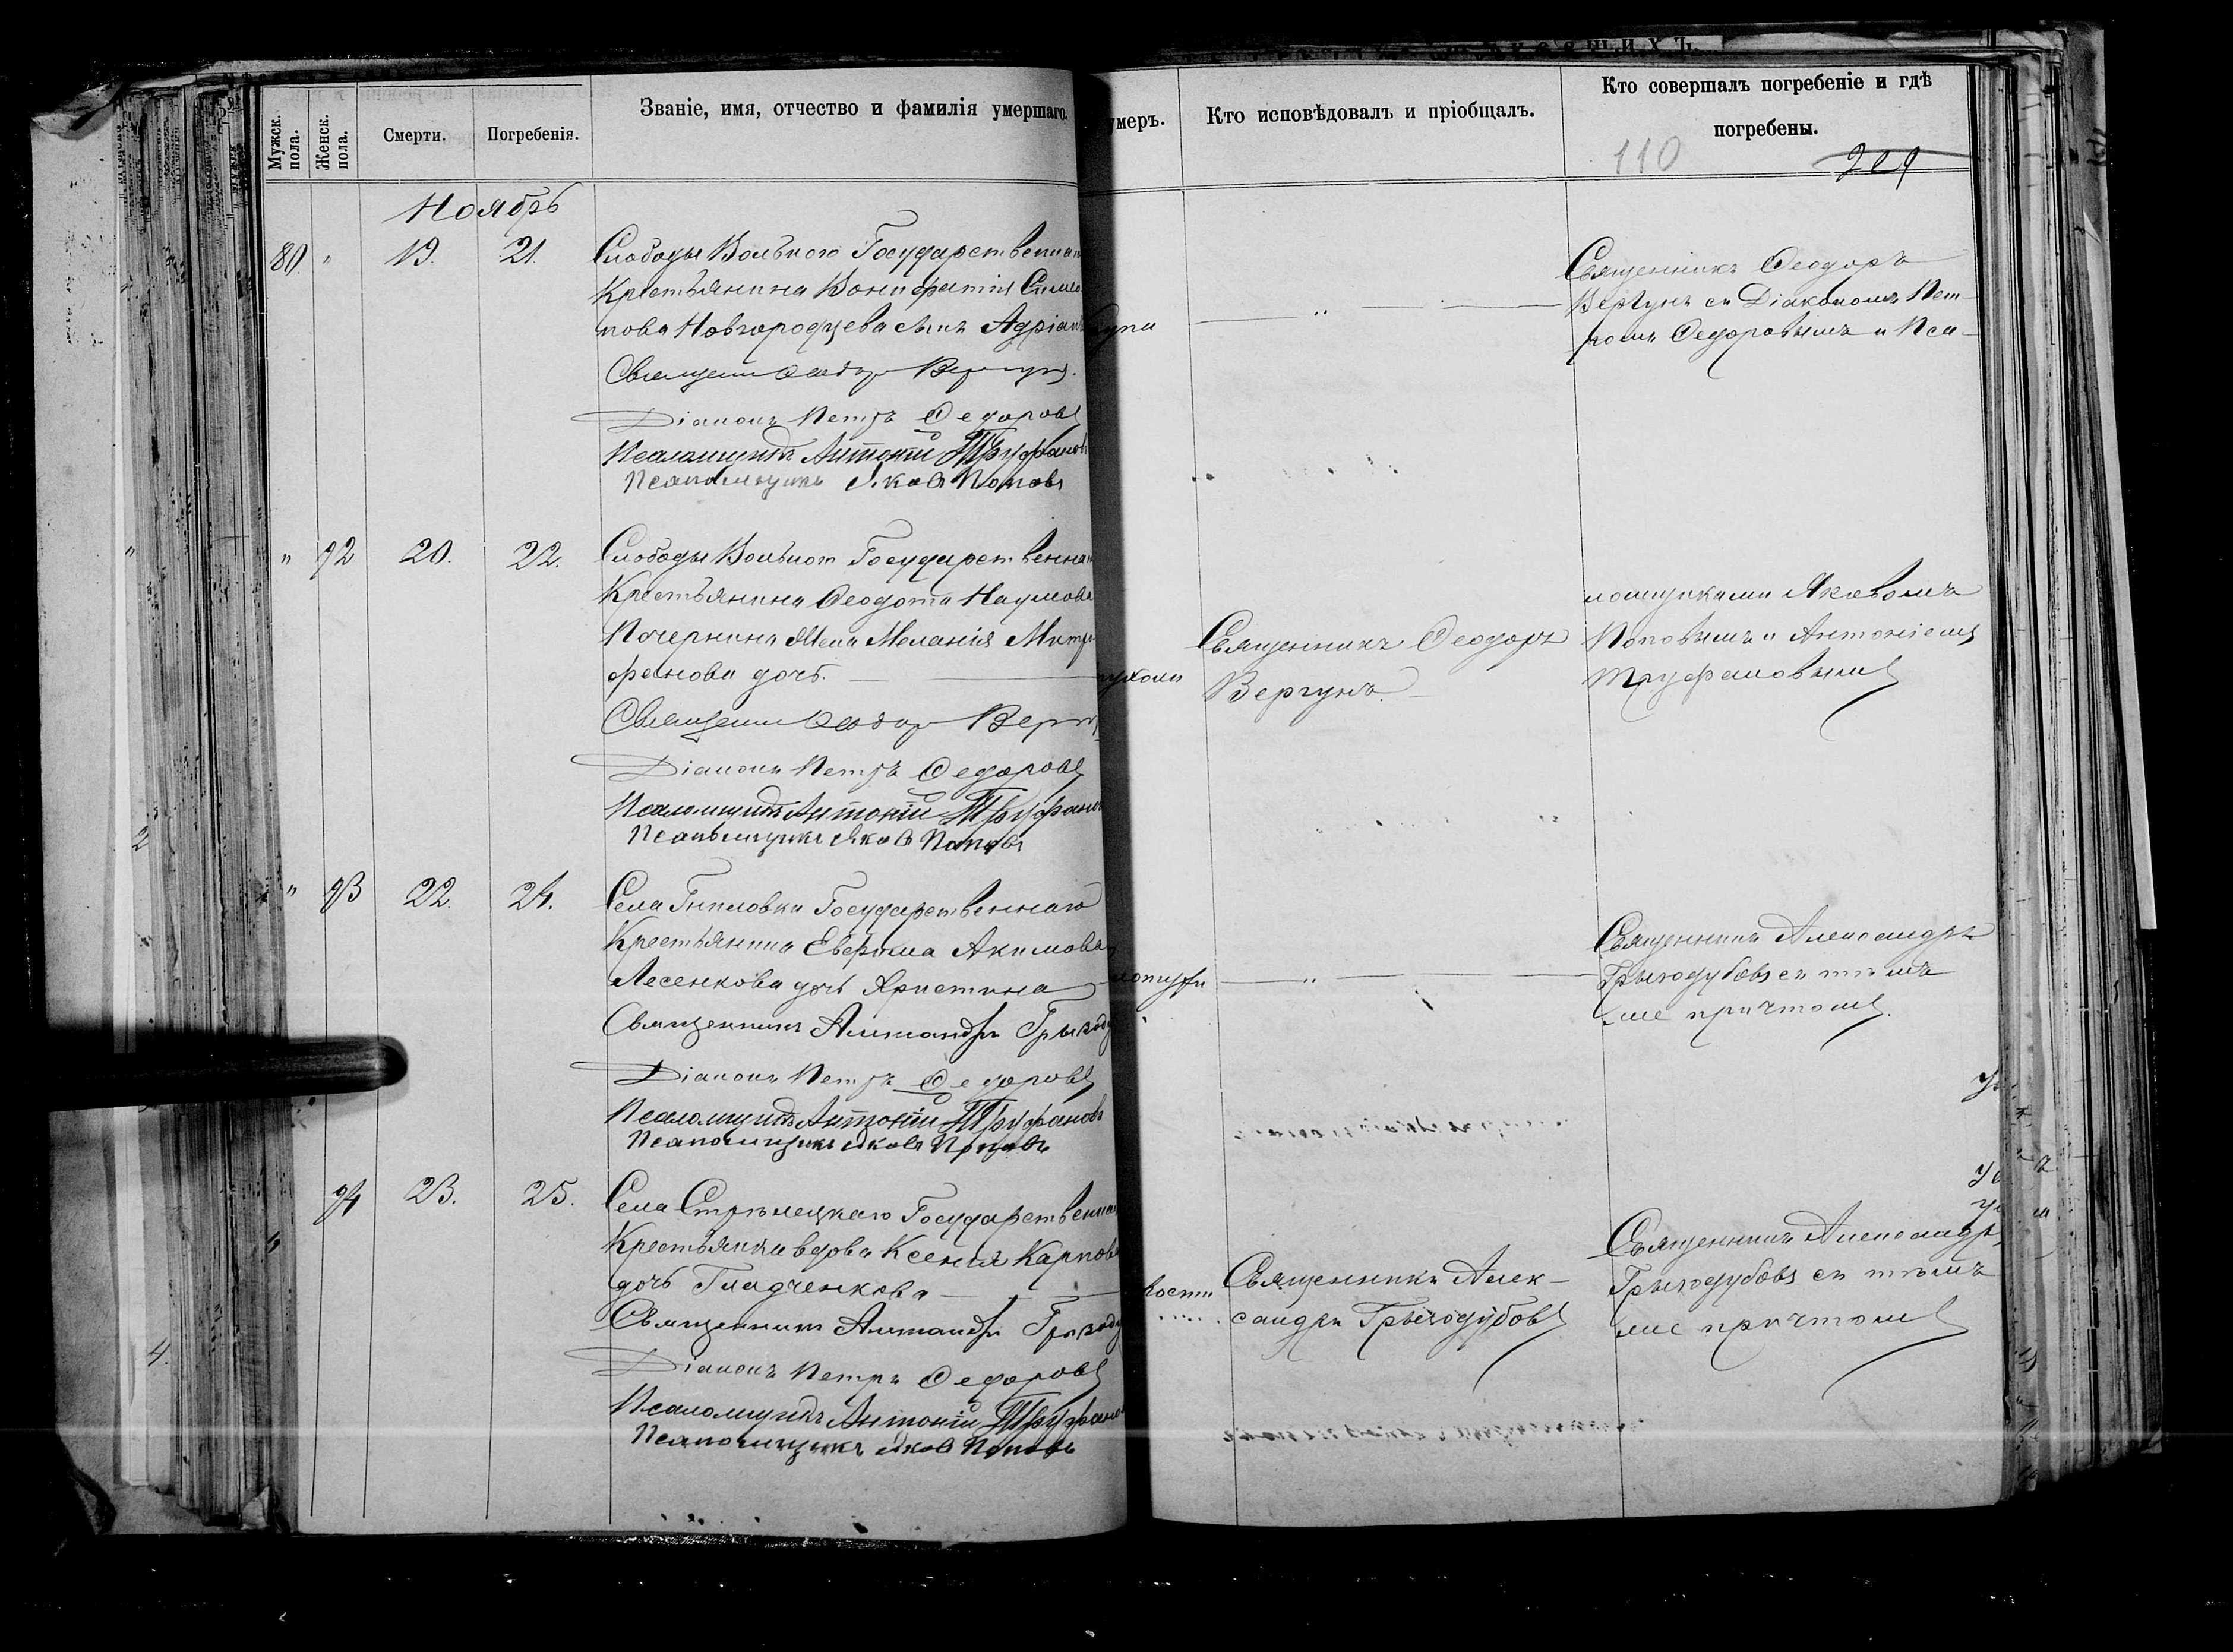 Мужск. пола.
Женск. пола.
Смерти.
Погребенія.
Званіе, имя, отчество и фамилія умершаго.
умеръ.
Кто исповѣдовалъ и пріобщалъ.
Кто совершалъ погребеніе и гдѣ
погребены.
110
Ноябрь
80 " 19. 21.
Слободы Вольного Государственна
Крестьянина Вонифатія Симео
нова Новгородцева сынъ Адріан
Священникъ Ѳеодоръ Вергунъ.
Діаконъ Петръ Ѳедоровъ
Псаломщикъ Антоній Труфановъ
Псаломщикъ Яковъ Поповъ
"
Священникъ Ѳеодоръ
Вергунъ съ Діакономъ Пет-
ромъ Ѳедоровымъ и Пса-
" 92 20. 22.
Слободы Вольного Государственна
Крестьянина Ѳеодота Наумова
Почернина жена Меланія Митро
фанова дочь.
Священникъ Ѳеодоръ Вергу
Діаконъ Петръ Ѳедоровъ
Псаломщикъ Антоній Труфано
Псаломщикъ Яковъ Поповъ
Священникъ Ѳеодоръ
Вергунъ.
ломщиками Яковомъ
Поповымъ и Антоніемъ
Труфановымъ
" 93 22. 24.
Села Гниловки Государственнаго
Крестьянина Евфима Акимова
Лесенкова дочь Христина
Священникъ Александръ Грызоду
Діаконъ Петръ Ѳедоровъ
Псаломщикъ Антоній Труфановъ
Псаломщикъ Яковъ Поповъ
"
Священникъ Александръ
Грызодубовъ съ тѣмъ
же причтомъ.
94 23. 25.
Села Стрѣлецкаго Государственна
Крестьянка вдова Ксенія Карпова
дочь Гладченкова
Священникъ Александръ Грызоду
Діаконъ Петръ Ѳедоровъ
Псаломщикъ Антоній Труфано
Псаломщикъ Яковъ Поповъ
Священникъ Алек-
сандръ Грызодубовъ
Священникъ Александръ
Грызодубовъ съ тѣмъ
же причтомъ